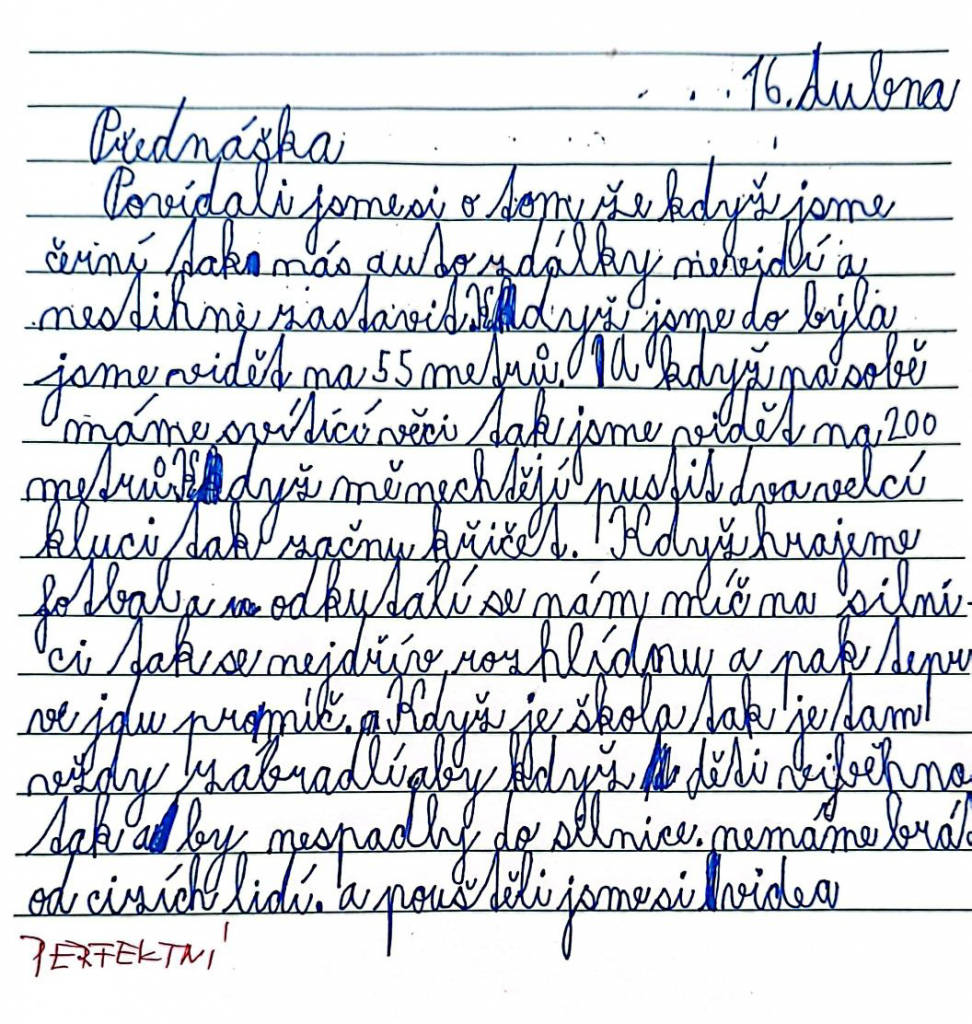 16. dubna
Přednáška
Povídali jsme si o tom že když jsme
čériní tak nás auto zdálky nevidí a
nestihne zastavit. Když jsme do býla
jsme vidět na 55 metrů. A když na sobě
máme svítící věci tak jsme vidět na 200
metrů. Když mě nechtějí pustit dva velcí
kluci tak začnu křičet. Když hrajeme
fotbal a odkutálí se nám míč na silni-
ci tak se nejdřív rozhlídnu a pak tepr
ve jdu pro míč. Když je škola tak je tam
vždy zábradlí aby když děti vijběhno
tak aby nespadly do silnice. nemáme brát
od cizích lidí. a pouštěli jsme si videa
PERFEKTNÍ